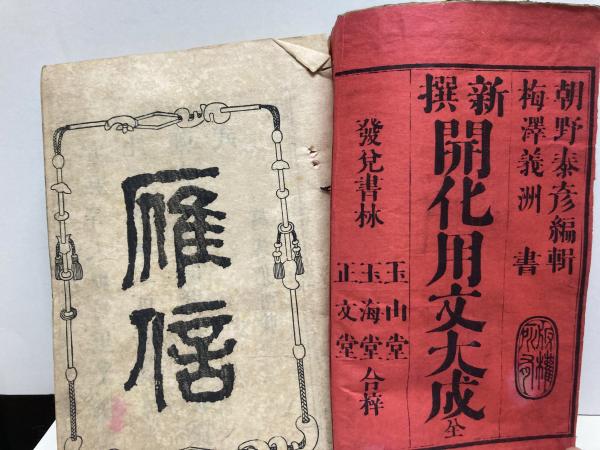 朝野泰彦編輯
梅澤義洲 書
新撰
開化用文大成 全
發兌書林
玉山堂
玉海堂 合梓
正文堂
版權所有
雁信